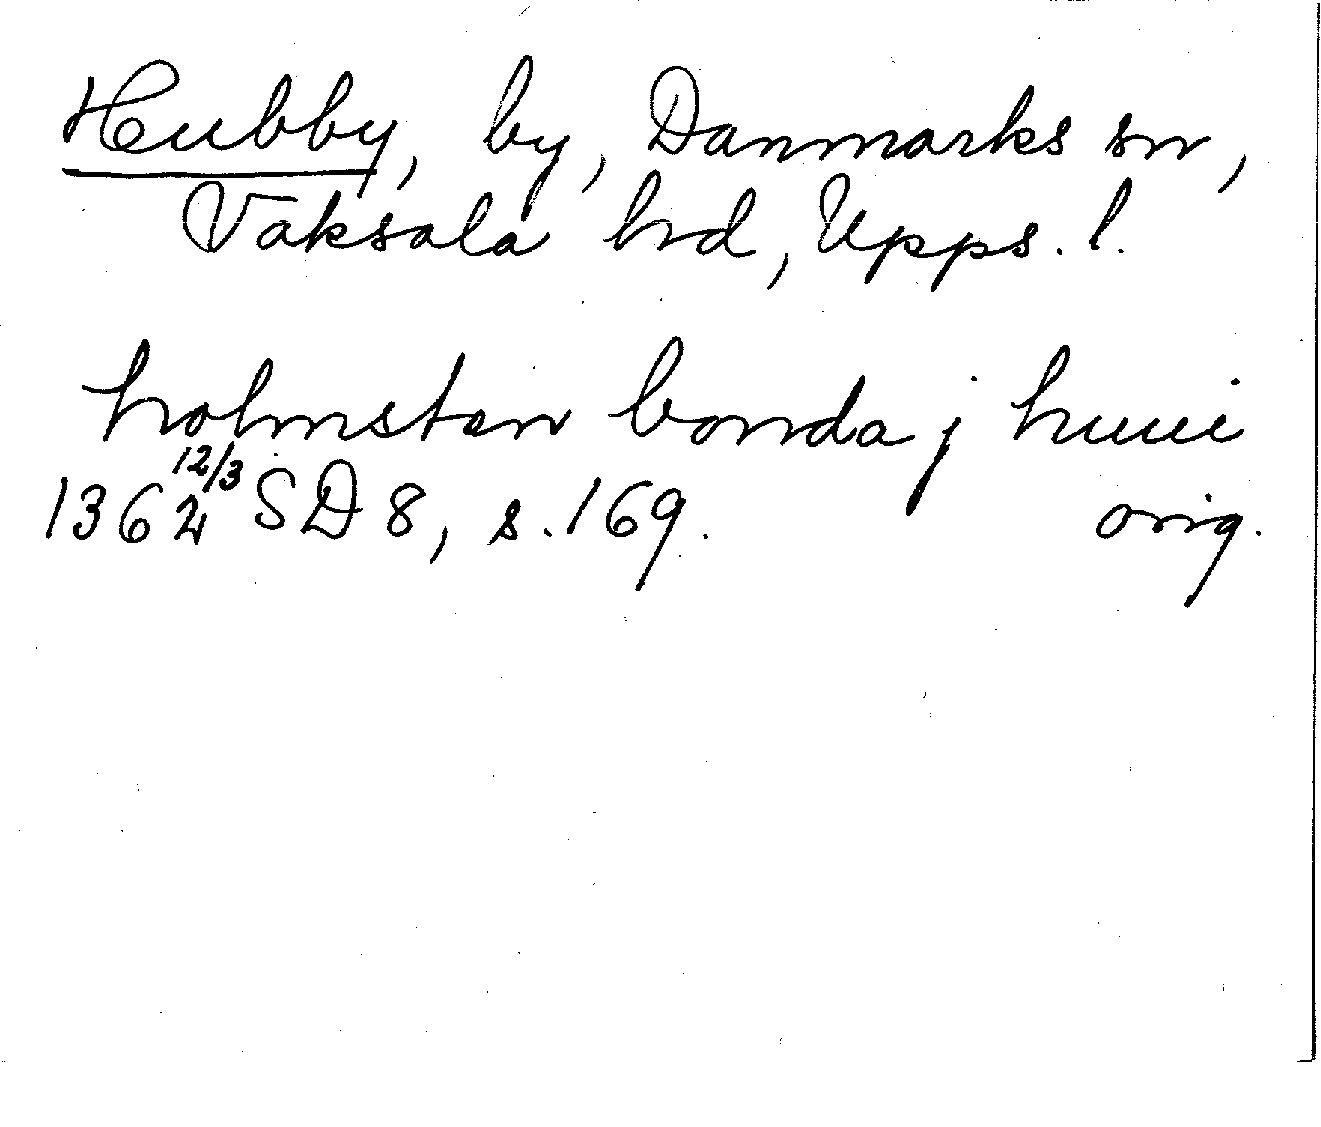 Hubby, by, Danmarks sn,
Vaksala hd, Upps. l.
holmsten bonda j huui
1364 12/3 SD 8, s. 169. orig.